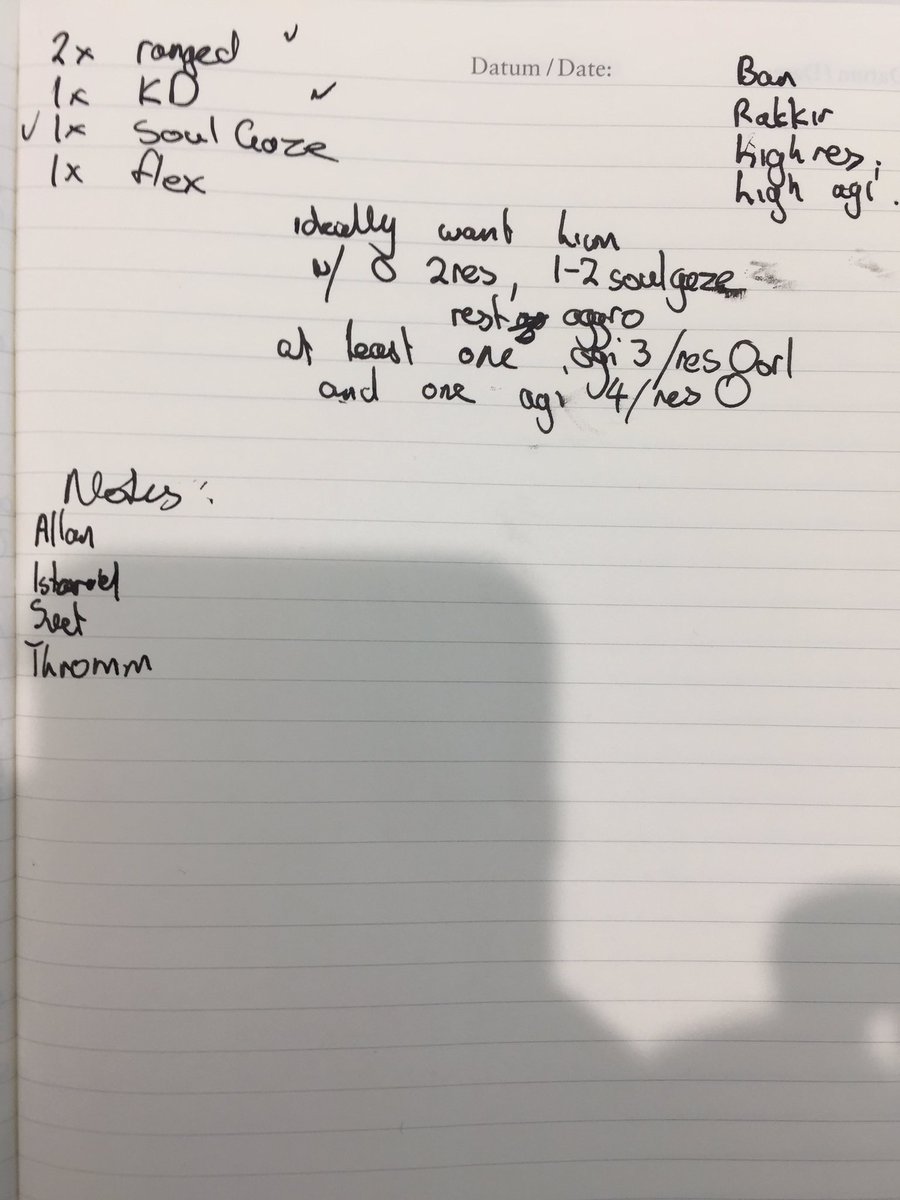 2x ranged ✓
1x KD ✓
✓ 1x Soul Gaze
1x flex
Datum / Date:
Ban
Rakkir
high res.
high agi.
ideally want him
w/ 0 2res, 1-2 soulgaze
rest aggro
at least one agi 3/res 0or1
and one agi 4/res 0
Notes:
Allan
Thromm